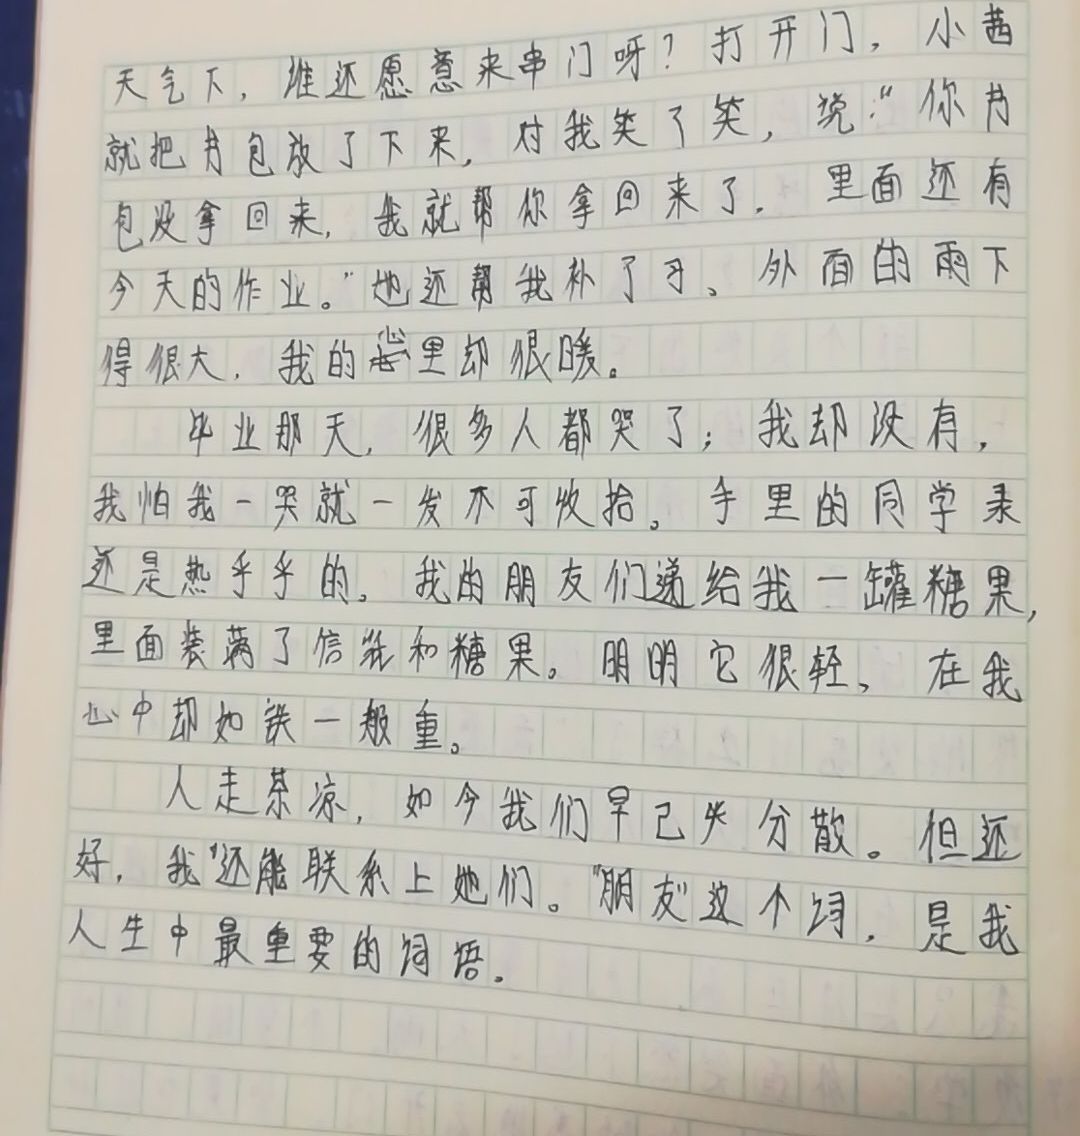 天气下，谁还愿意来串门呀？打开门，小茜
就把书包放了下来，对我笑了笑，说：“你书
包没拿回来，我就帮你拿回来了。里面还有
今天的作业。”她还帮我补了习。外面的雨下
得很大，我的心里却很暖。
毕业那天，很多人都哭了；我却没有，
我怕我一哭就一发不可收拾。手里的同学录
还是热乎乎的。我的朋友们递给我一罐糖果，
里面装满了信纸和糖果。明明它很轻，在我
心中却如铁一般重。
人走茶凉，如今我们早已失分散。但还
好，我还能联系上她们。“朋友”这个词，是我
人生中最重要的词语。